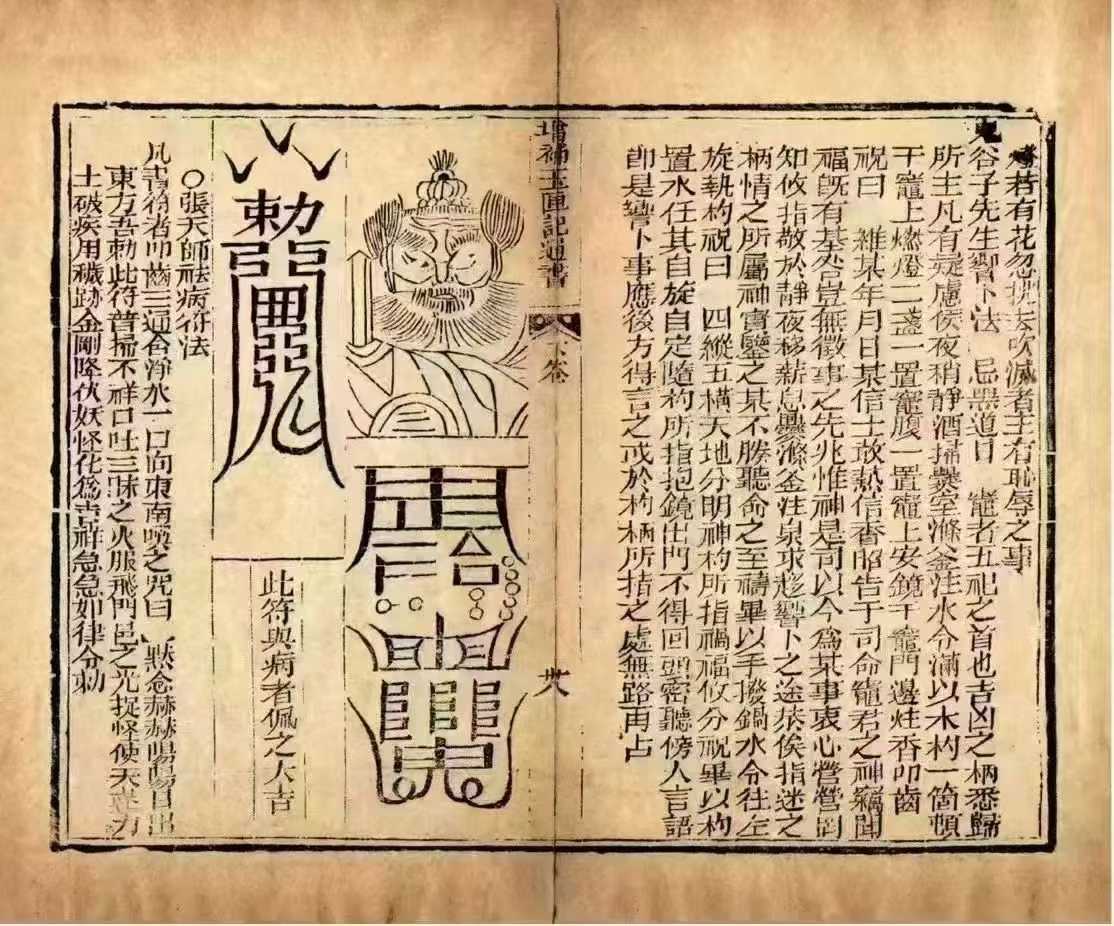 燈若有花忽挑去吹滅者主有恥辱之事
鬼谷子先生響卜法 忌黑道日 竈者五祀之首也吉凶之柄悉歸
所主凡有疑慮俟夜稍靜洒掃爨室滌釜注水令滿以木杓一箇頓
于竈上燃燈二盞一置竈腹一置竈上安鏡于竈門邊炷香叩齒
祝曰 維某年月日某信士敢爇信香昭告于司命竈君之神竊聞
福既有基咎豈無徵事之先兆惟神是司以今為某事衷心營營罔
知攸指敬於靜夜移薪息爨滌釜注泉求趍響卜之途恭俟指迷之
柄情之所屬神實鑒之某不勝聽命之至禱畢以手撥鍋水令往左
旋執杓祝曰 四縱五橫天地分明神杓所指禍福攸分祝畢以杓
置水任其自旋自定隨杓所指抱鏡出門不得回頭密聽傍人言語
即是響卜事應後方得言之或於杓柄所指之處無路再占
增補玉匣記通書
卷
廿八
勅
此符與病者佩之大吉
○張天師祛病符法
凡書符者叩齒三通含淨水一口向東南噀之咒曰 默念赫赫陽陽日出
東方吾勅此符普掃不祥口吐三昧之火服飛門邑之光捉怪使天蓬力
士破疾用穢跡金剛降伏妖怪化為吉祥急急如律令勅